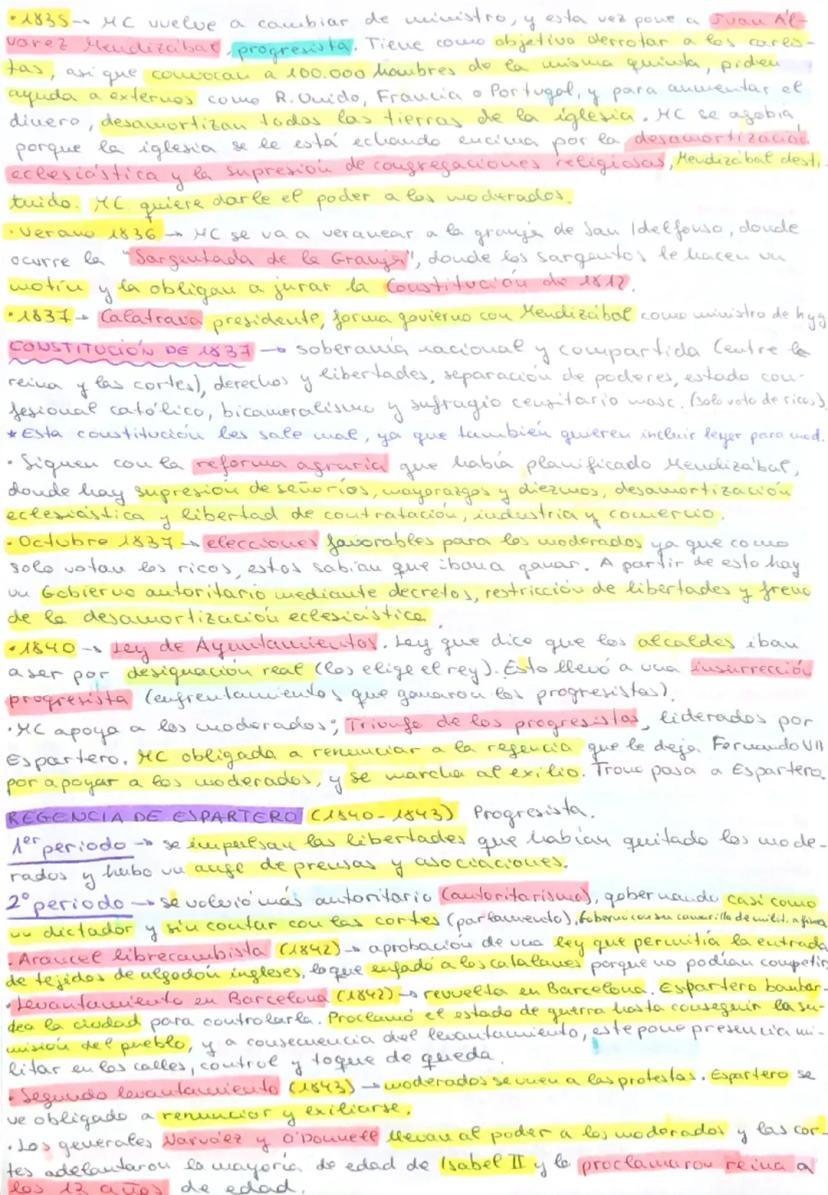 • 1835 → MC vuelve a cambiar de ministro, y esta vez pone a Juan Ál-
varez Mendizábal, progresista. Tiene como objetivo derrotar a los carlis-
tas, así que convocan a 100.000 hombres de la misma quinta, piden
ayuda a externos como R.Unido, Francia o Portugal, y para aumentar el
dinero, desamortizan todas las tierras de la iglesia. MC se agobia
porque la iglesia se le está echando encima por la desamortización
eclesiástica y la supresión de congregaciones religiosas, Mendizábal desti-
tuido. MC quiere darle el poder a los moderados.
• Verano 1836 → MC se va a veranear a la granja de San Idelfonso, donde
ocurre la "Sargentada de la Granja", donde los sargentos le hacen un
motín y la obligan a jurar la Constitución de 1812.
• 1837 → Calatrava presidente, forma govierno con Mendizábal como ministro de hyg
CONSTITUCIÓN DE 1837 → soberanía nacional y compartida (entre la
reina y las cortes), derechos y libertades, separación de poderes, estado con-
fesional católico, bicameralismo y sufragio censitario masc. (solo voto de ricos).
* Esta constitución les sale mal, ya que también quieren incluir leyes para mod.
• Siguen con la reforma agraria que había planificado Mendizábal,
donde hay supresión de señoríos, mayorazgos y diezmos, desamortización
eclesiástica y libertad de contratación, industria y comercio.
• Octubre 1837 → elecciones favorables para los moderados ya que como
solo votan los ricos, estos sabían que iban a ganar. A partir de esto hay
un Gobierno autoritario mediante decretos, restricción de libertades y freno
de la desamortización eclesiástica.
• 1840 → Ley de Ayuntamientos. Ley que dice que los alcaldes iban
a ser por designación real (los elige el rey). Esto llevó a una insurrección
progresista (enfrentamientos que ganaron los progresistas).
• MC apoya a los moderados; Triunfo de los progresistas, liderados por
Espartero. MC obligada a renunciar a la regencia que le deja Fernando VII
por apoyar a los moderados, y se marcha al exilio. Trono pasa a Espartero.
REGENCIA DE ESPARTERO (1840-1843) Progresista.
1er periodo → se impulsan las libertades que habían quitado los mode-
rados y hubo un auge de prensas y asociaciones.
2º periodo → se volvió más autoritario (autoritarismo), gobernando casi como
un dictador y sin contar con las cortes (parlamento), Gobernó con su camarilla de milit. afines
• Arancel librecambista (1842) → aprobación de una ley que permitía la entrada
de tejidos de algodón ingleses, lo que enfadó a los catalanes porque no podían competir.
• Levantamiento en Barcelona (1842) → revuelta en Barcelona. Espartero bombar-
dea la ciudad para controlarla. Proclamó el estado de guerra hasta conseguir la su-
misión del pueblo, y a consecuencia del levantamiento, este pone presencia mi-
litar en las calles, control y toque de queda.
• Segundo levantamiento (1843) → moderados se unen a las protestas. Espartero se
ve obligado a renunciar y exiliarse.
• Los generales Narváez y O'Donnell llevan al poder a los moderados y las cor-
tes adelantaron la mayoría de edad de Isabel II y la proclamaron reina a
los 13 años de edad.